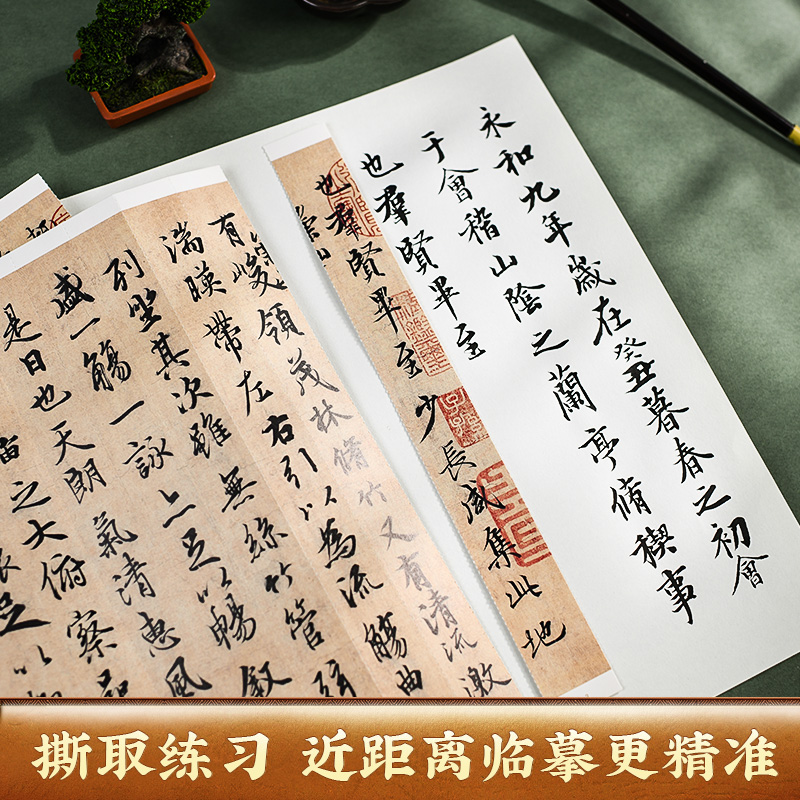 永和九年歲在癸丑暮春之初會
于會稽山陰之蘭亭脩稧事
也羣賢畢至
也羣賢畢至少長咸集此地
有峻領茂林脩竹又有清流激
湍暎帶左右引以為流觴曲
列坐其次雖無絲竹管弦
盛一觴一詠亦足以暢叙
是日也天朗氣清惠風
宙之大俯察品
足以
撕取练习 近距离临摹更精准